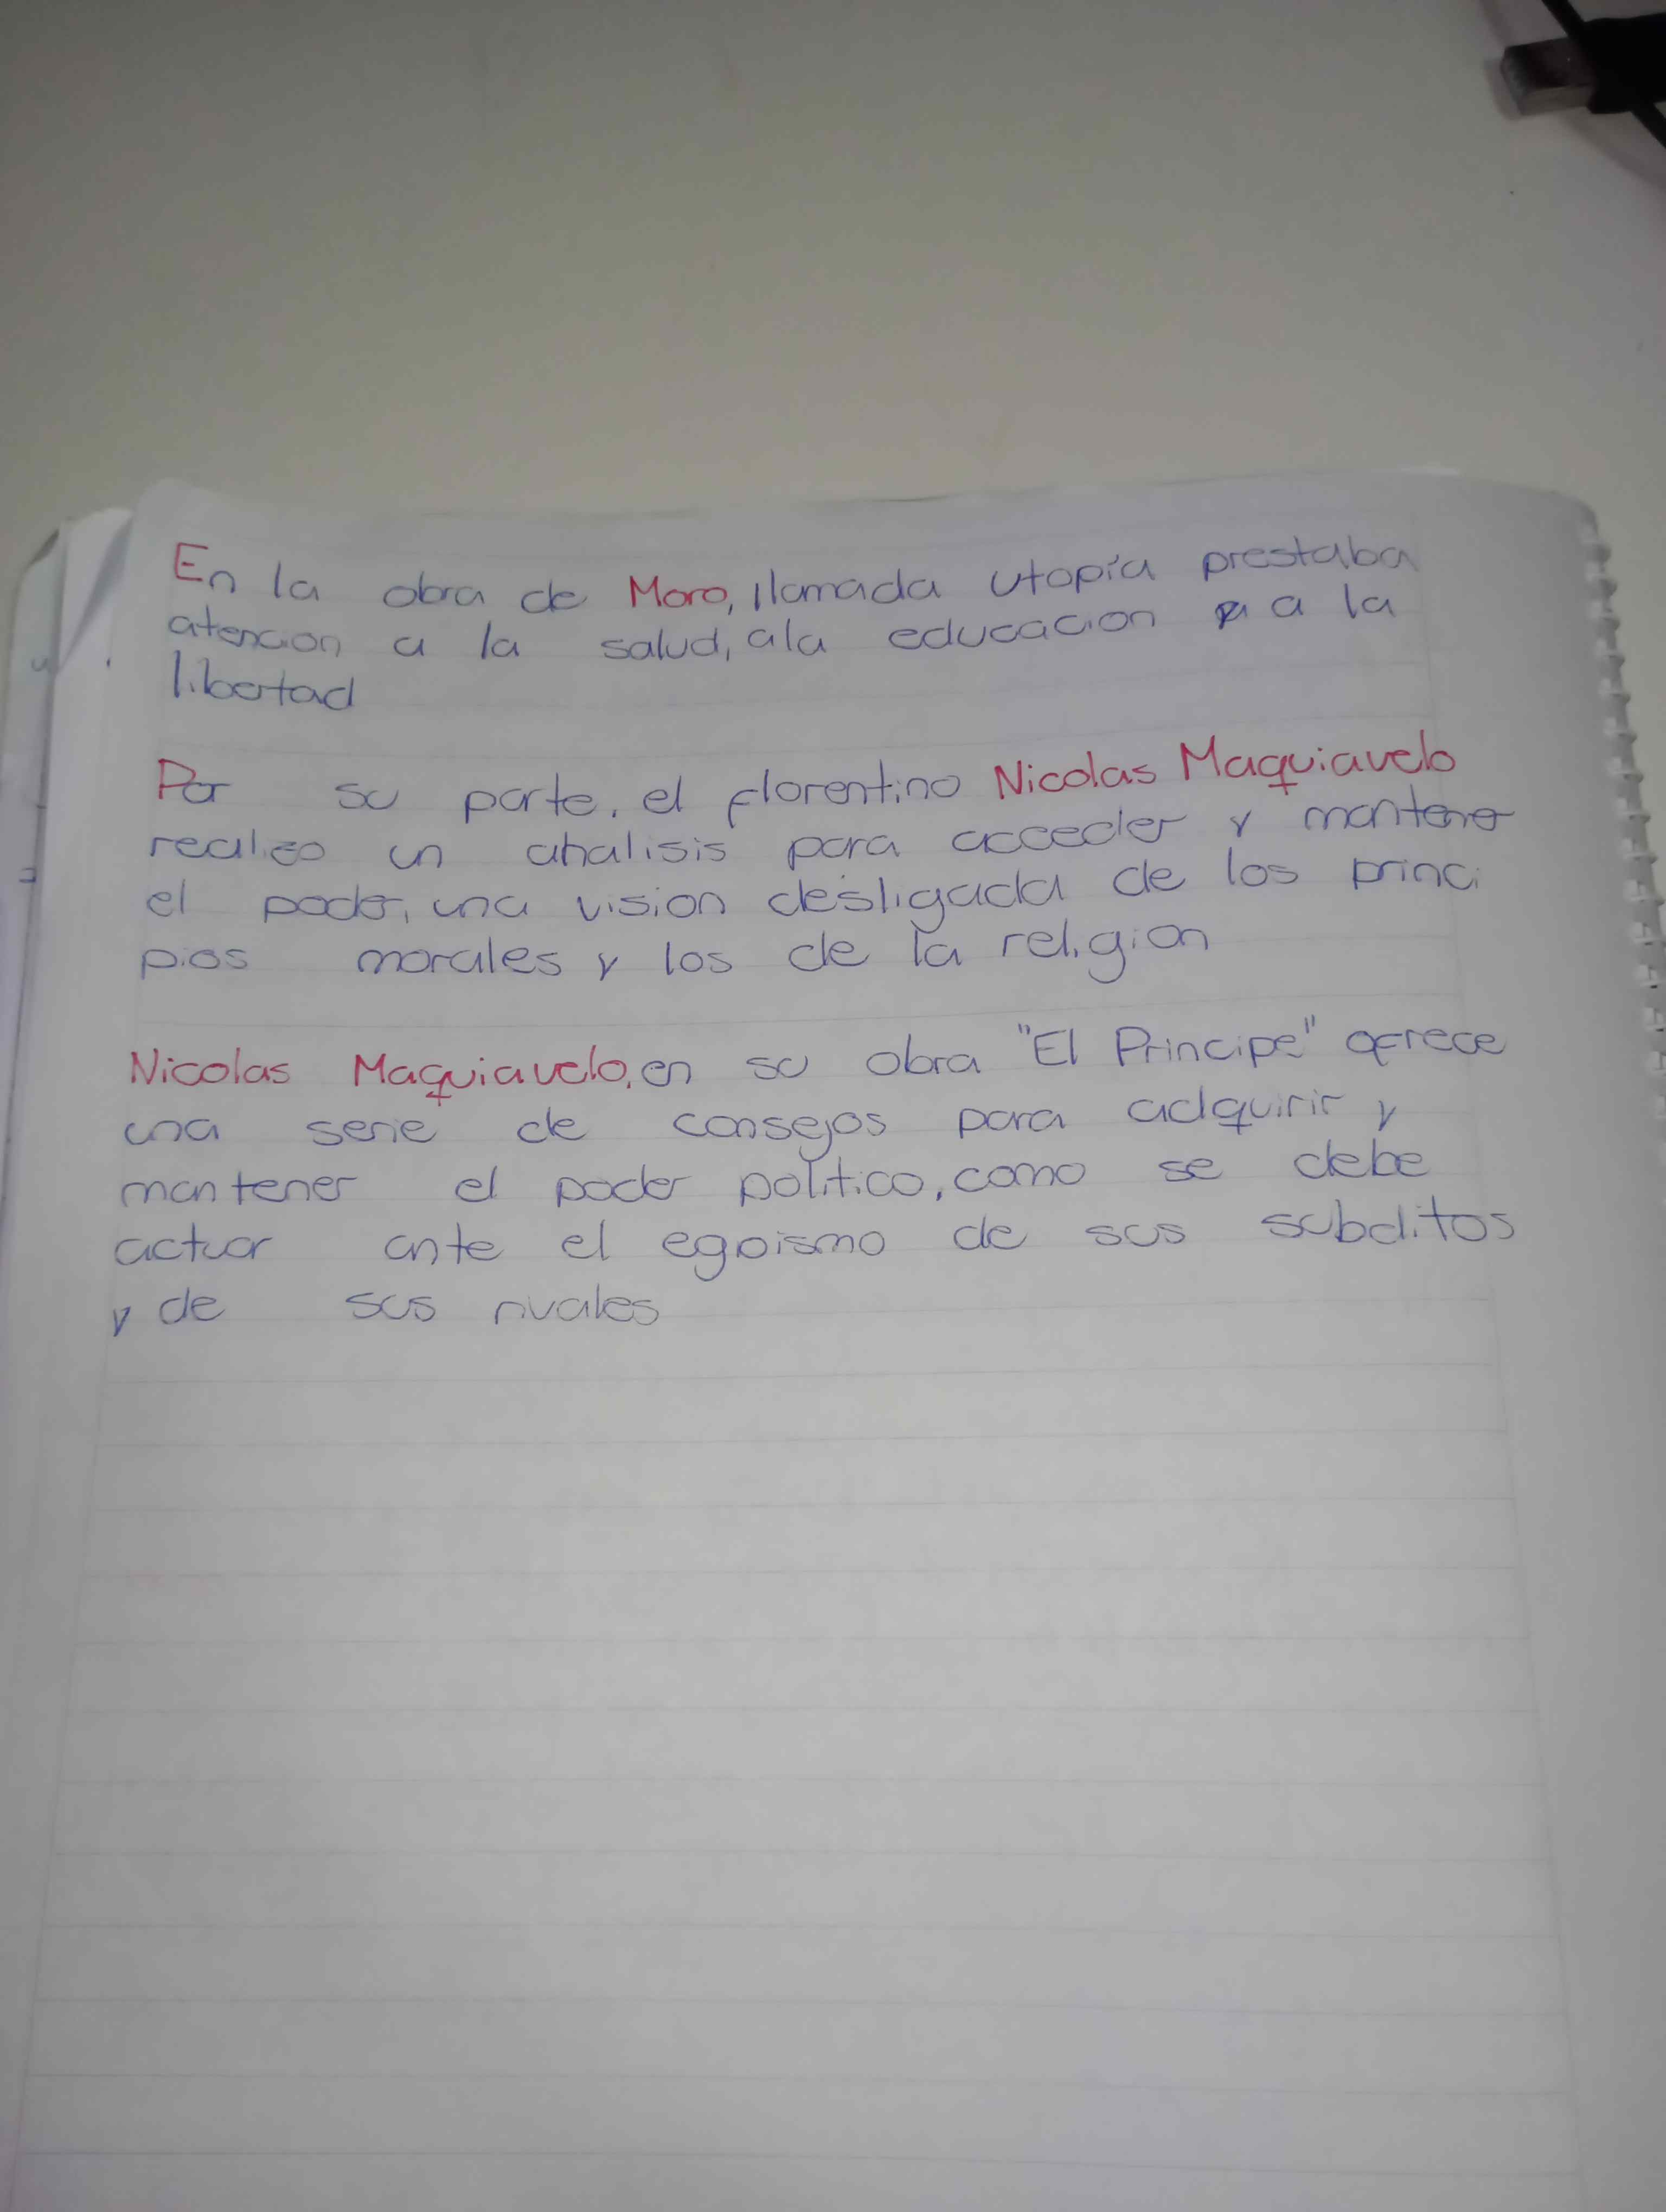 En la obra de Moro, llamada utopía prestaba
atencion a la salud, ala educacion a la
libertad
Por su parte, el florentino Nicolas Maquiavelo
realizo un analisis para acceder y mantener
el poder, una vision desligada de los princi
pios morales y los de la religion
Nicolas Maquiavelo, en su obra "El Principe" ofrece
una serie de consejos para adquirir y
mantener el poder politico, como se debe
actuar ante el egoismo de sus subditos
y de sus rivales